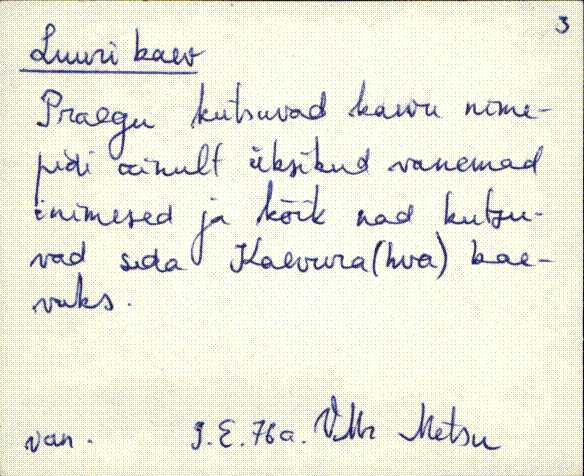 3
Luuri kaev
Praegu kutsuvad kaevu nime-
pidi ainult üksikud vanemad
inimesed ja kõik nad kutsu-
vad seda Kaevura(hva) kae-
vuks.
van. J.E. 76a. Metsu